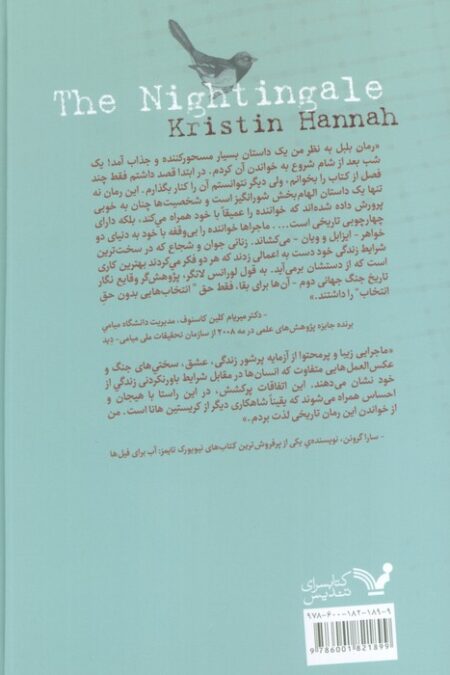 The Nightingale
Kristin Hannah
«رمان بلبل به نظر من یک داستان بسیار مسحورکننده و جذاب آمد! یک
شب بعد از شام شروع به خواندن آن کردم. در ابتدا قصد داشتم فقط چند
فصل از کتاب را بخوانم، ولی دیگر نتوانستم آن را کنار بگذارم. این رمان نه
تنها یک داستان الهام‌بخش شورانگیز است و شخصیت‌ها چنان به خوبی
پرورش داده شده‌اند که خواننده را عمیقاً با خود همراه می‌کند، بلکه دارای
چهارچوبی تاریخی است.... ماجراها خواننده را بی‌وقفه با خود به دنیای دو
خواهر - ایزابل و ویان - می‌کشاند. زنانی جوان و شجاع که در سخت‌ترین
شرایط زندگی خود دست به اعمالی زدند که هر دو فکر می‌کردند بهترین کاری
است که از دستشان برمی‌آید. به قول لورانس لانگر، پژوهش‌گر وقایع نگار
تاریخ جنگ جهانی دوم - آن‌ها برای بقا، فقط حق " انتخاب‌هایی بدون حق
انتخاب" را داشتند.»
- دکتر میریام کلین کاسنوف، مدیریت دانشگاه میامی
برنده جایزه پژوهش‌های علمی در مه ۲۰۰۸ از سازمان تحقیقات ملی میامی- دِید
«ماجرایی زیبا و پرمحتوا از آزمایه پرشور زندگی، عشق، سختی‌های جنگ و
عکس‌العمل‌هایی متفاوت که انسان‌ها در مقابل شرایط باورنکردنی زندگی از
خود نشان می‌دهند. این اتفاقات پرکشش، در این راستا با هیجان و
احساس همراه می‌شوند که یقیناً شاهکاری دیگر از کریستین هانا است. من
از خواندن این رمان تاریخی لذت بردم.»
- سارا گرونن، نویسنده‌ی یکی از پرفروش‌ترین کتاب‌های نیویورک تایمز: آب برای فیل‌ها
کتابسرای
تندیس
۹۷۸-۶۰۰-۱۸۲-۱۸۹-۹
9 786001 821899